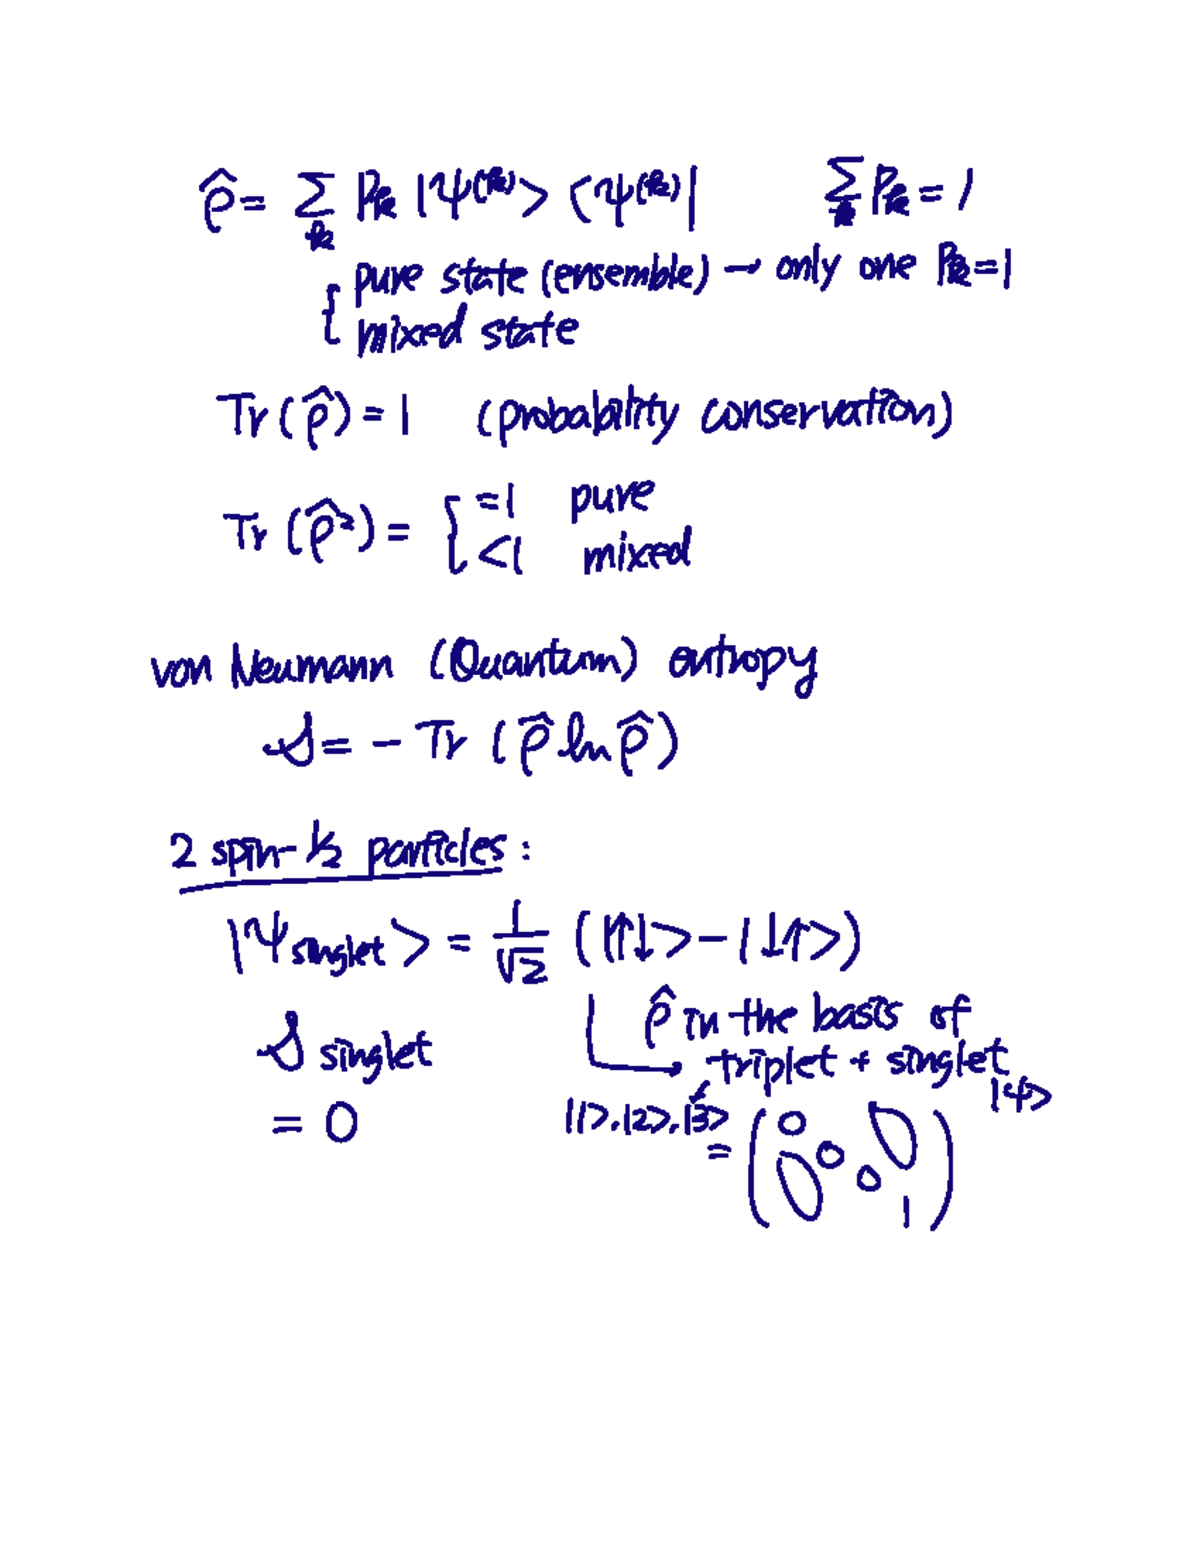 ρ̂ = Σ_k P_k |ψ^(k)> <ψ^(k)|   Σ_k P_k = 1
{ pure state (ensemble) → only one P_k = 1
mixed state
Tr(ρ̂) = 1 (probability conservation)
Tr(ρ̂²) = { =1 pure
<1 mixed
von Neumann (Quantum) entropy
S = - Tr (ρ̂ ln ρ̂)
2 spin-1/2 particles:
|ψ_singlet> = 1/√2 (|↑↓> - |↓↑>)
ρ̂ in the basis of
S_singlet → triplet + singlet
|1>, |2>, |3> |ψ>
= 0 = ( 0 0 0 1 )